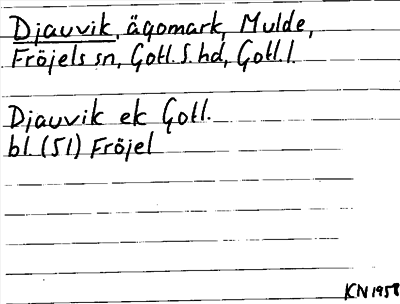 Djauvik, ägomark, Mulde,
Fröjels sn, Gotl. S. hd, Gotl. l.
Djauvik ek Gotl.
bl. (51) Fröjel
KN 1958